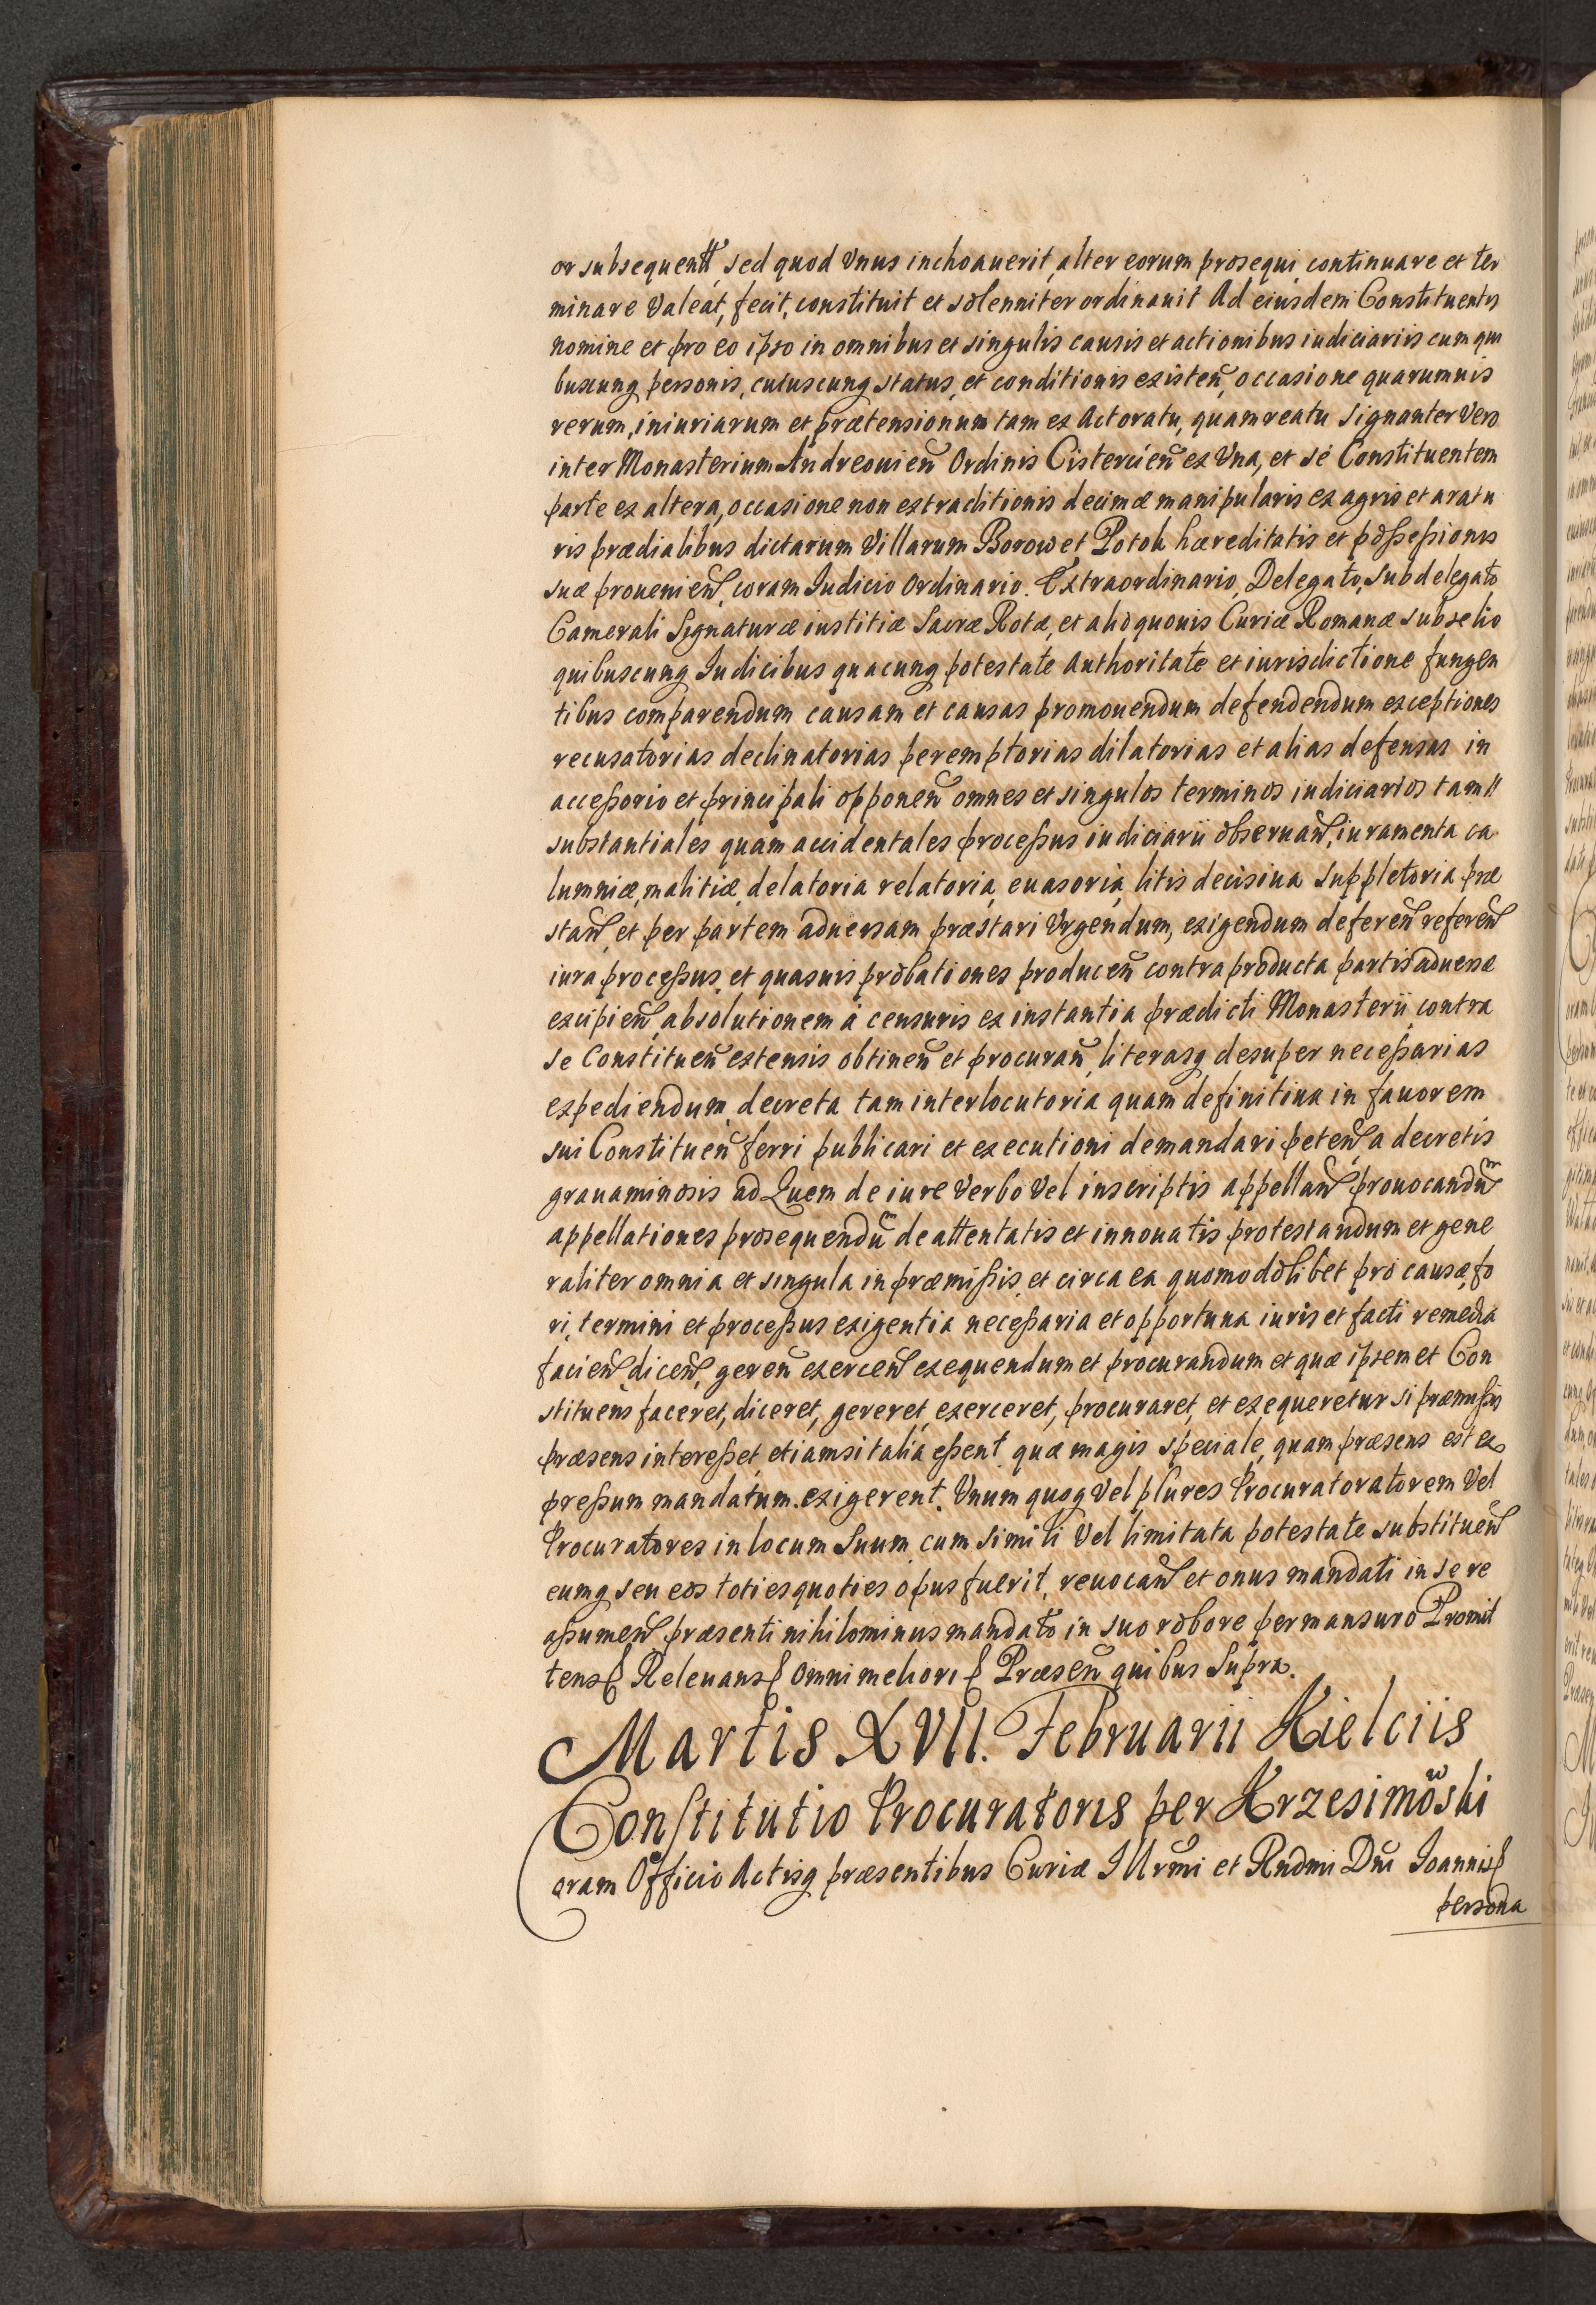 or subsequent, sed quod Vnus inchoauerit, alter eorum prosequi continuare et ter
minare Valeat, fecit, constituit et solenniter ordinauit Ad eiusdem Constituentis
nomine et pro eo ipso in omnibus et singulis causis et actionibus iudiciariis cum qui
buscunq personis, cuiuscunq status, et conditionis existen, occasione quarumuis
rerum, iniuriarum et prætensionum tam ex Actoratu, quam reatu signanter Vero
inter Monasterium Andreouien Ordinis Cistercien ex Vna, et se Constituentem
parte ex altera, occasione non extraditionis decimæ manipularis ex agris et aratu
ris prædialibus dictarum Villarum Borow et Potok hæreditatis et poßeßionis
suæ prouenien, coram Iudicio Ordinario. Extraordinario, Delegato, Subdelegato
Camerali Signaturæ iustitiæ Sacræ Rotæ, et alio quouis Curiæ Romanæ subselio
quibuscunq Iudicibus quacunq potestate Authoritate et iurisdictione fungen
tibus comparendum causam et causas promouendum defendendum exceptiones
recusatorias declinatorias peremptorias dilatorias et alias defensas in
acceßorio et principali opponen omnes et singulos terminos iudiciarios tam
substantiales quàm accidentales proceßus iudiciarii obseruan, iuramenta ca
lumniæ, malitiæ, delatoria relatoria, euasoria, litis decisiua suppletoria præ
stan, et per partem aduersam præstari Vrgendum, exigendum deferen referen
iura proceßus, et quasuis probationes producen contra producta partis aduersæ
excipien, absolutionem à censuris ex instantia prædicti Monasterii contra
se Constituen extensis obtinen et procuran, literasq desuper neceßarias
expediendum, decreta tam interlocutoria quam definitiua in fauorem
sui Constituen ferri publicari et executioni demandari peten, a decretis
grauaminosis ad Quem de iure Verbo Vel inscriptis appellan prouocandum
appellationes prosequendum de attentatis et innouatis protestandum et gene
raliter omnia et singula in præmißis, et circa ea quomodolibet pro causæ, fo
ri, termini et proceßus exigentia neceßaria et opportuna iuris et facti remedia
facien, dicen, geren exercen exequendum et procurandum et quæ ipsemet Con
stituens faceret, diceret, gereret, exerceret, procuraret, et exequeretur si præmißis
præsens intereßet, etiamsi talia eßent, quæ magis speciale, quam præsens est ex
preßum mandatum. exigerent. Vnum quoq Vel plures Procuratoratorem Vel
Procuratores in locum Suum, cum simili Vel limitata potestate substituen
eumq seu eos toties quoties opus fuerit, reuocan et onus mandati in se re
aßumen præsenti nihilominus mandato in suo robore permansuro Promit
tens Releuans omni meliori Præsen quibus Supra.
Martis XVII. Februarii Kielciis
Constitutio Procuratoris per Krzesimowski
Coram Officio Actisq præsentibus Curiæ Illrmi et Rndmi Dni Ioannis
persona